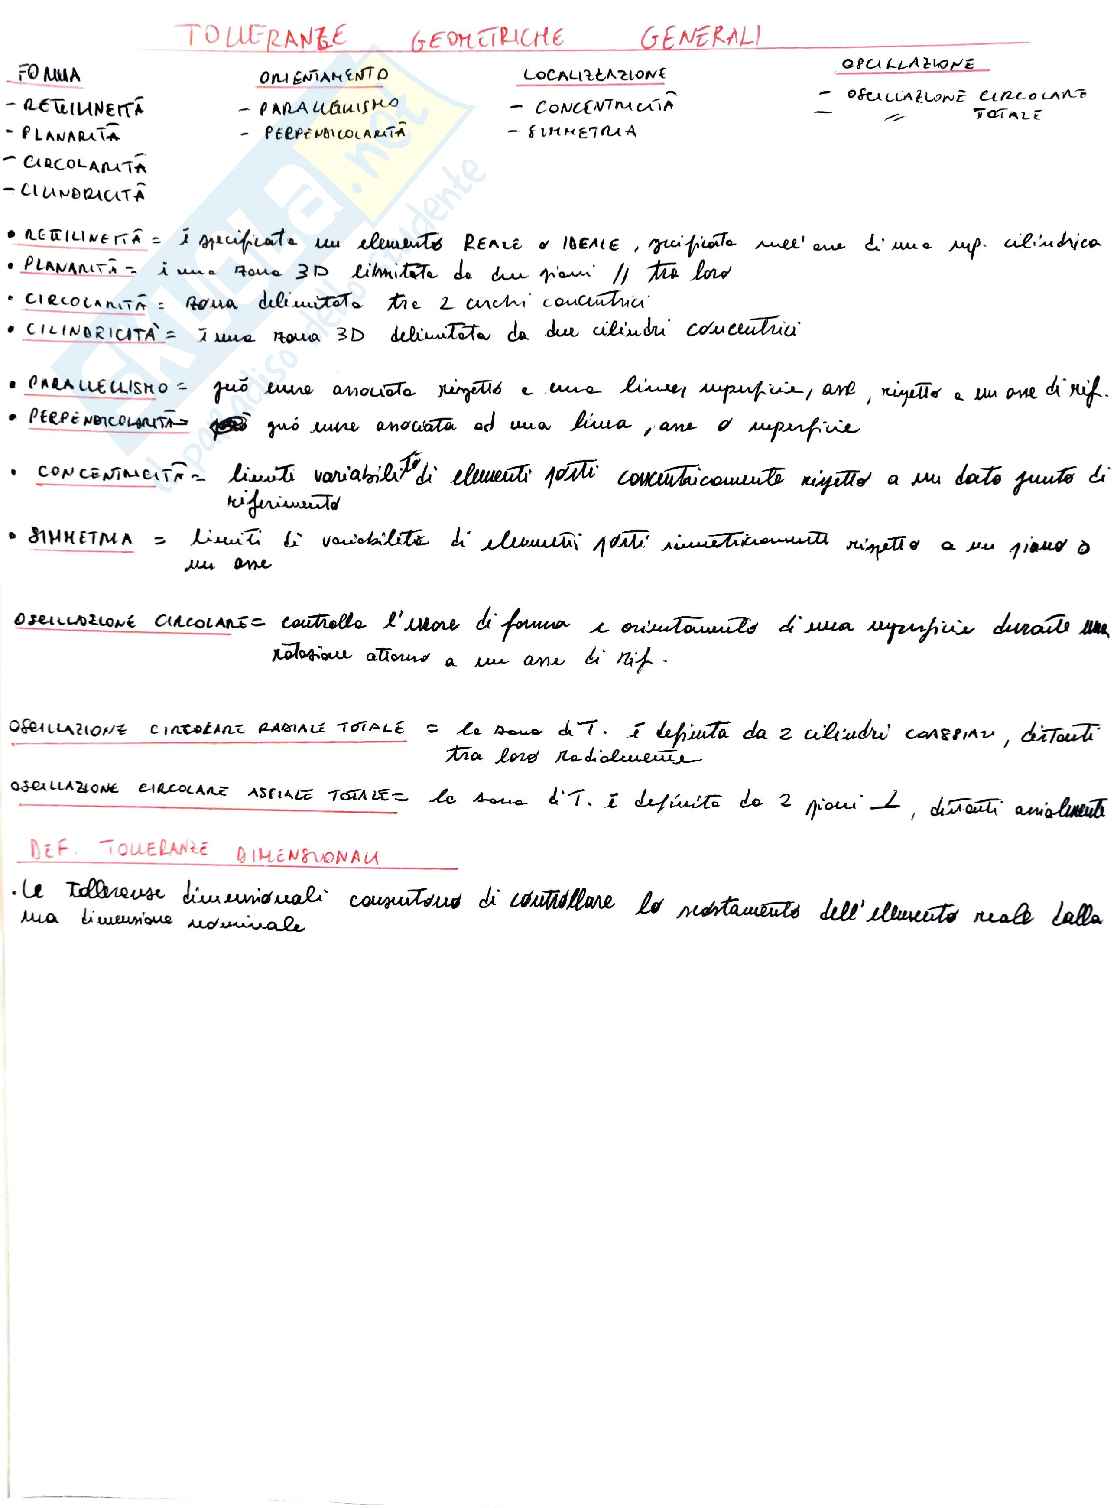 TOLLERANZE GEOMETRICHE GENERALI
FORMA
- RETTILINEITÀ
- PLANARITÀ
- CIRCOLARITÀ
- CILINDRICITÀ
ORIENTAMENTO
- PARALLELISMO
- PERPENDICOLARITÀ
LOCALIZZAZIONE
- CONCENTRICITÀ
- SIMMETRIA
OSCILLAZIONE
- OSCILLAZIONE CIRCOLARE
- " TOTALE
• RETTILINEITÀ = è specificata un elemento REALE o IDEALE, specificata sull'asse di una sup. cilindrica
• PLANARITÀ = è una zona 3D limitata da due piani // tra loro
• CIRCOLARITÀ = zona delimitata tra 2 cerchi concentrici
• CILINDRICITÀ = è una zona 3D delimitata da due cilindri concentrici
• PARALLELISMO = può essere associata rispetto a una linea, superficie, asse, rispetto a un asse di rif.
• PERPENDICOLARITÀ = può essere associata ad una linea, asse o superficie
• CONCENTRICITÀ = limite variabilità di elementi posti concentricamente rispetto a un dato punto di
riferimento
• SIMMETRIA = limiti di variabilità di elementi posti simmetricamente rispetto a un piano o
un asse
OSCILLAZIONE CIRCOLARE = controlla l'errore di forma e orientamento di una superficie durante una
rotazione attorno a un asse di rif.
OSCILLAZIONE CIRCOLARE RADIALE TOTALE = la zona di T. è definita da 2 cilindri coassiali, distanti
tra loro radialmente
OSCILLAZIONE CIRCOLARE ASSIALE TOTALE = la zona di T. è definita da 2 piani ⊥, distanti assialmente
DEF. TOLLERANZE DIMENSIONALI
• Le tolleranze dimensionali consentono di controllare lo scostamento dell'elemento reale dalla
sua dimensione nominale
SKUOLA.net